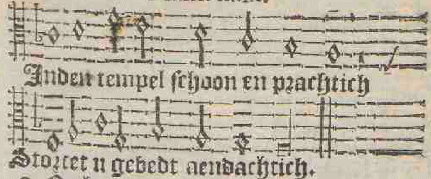 Inden tempel schoon en prachtich
Stortet u gebedt aendachtich.